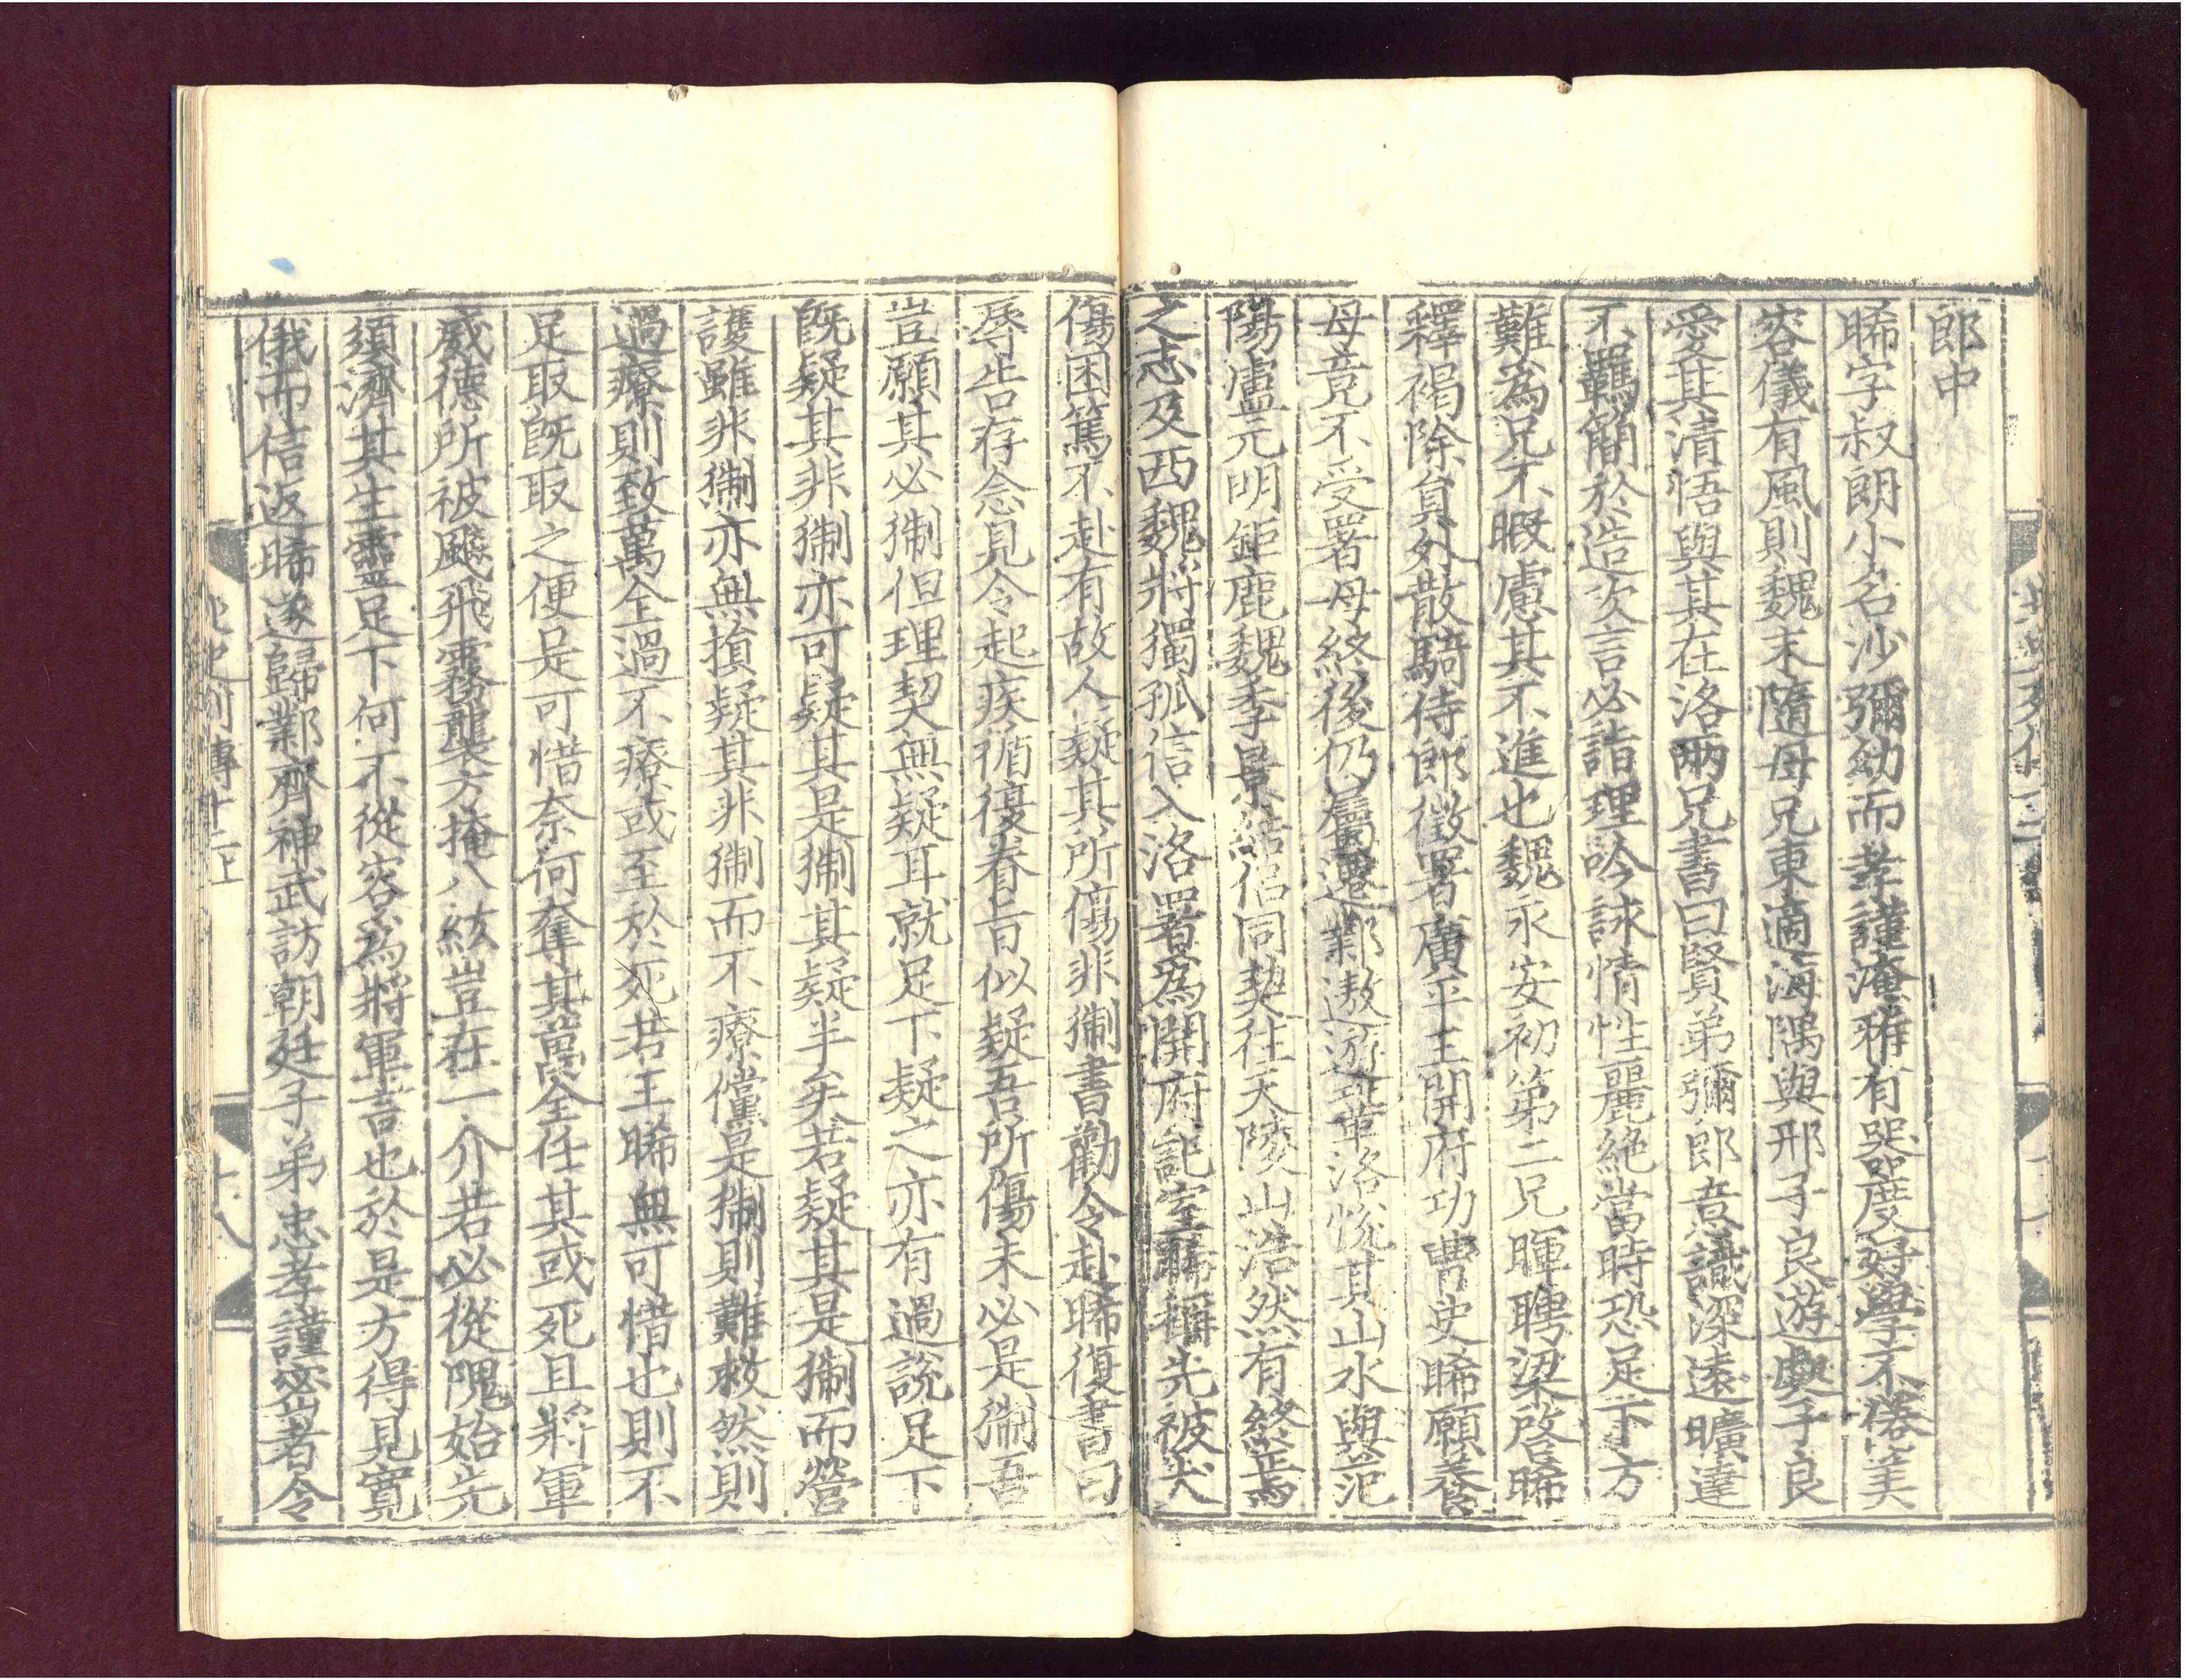 郎中
晞字叔朗小名沙彌幼而孝謹淹雅有器度好學不倦美
容儀有風則魏末隨母兄東適海隅與邢子良游處子良
愛其清悟與其在洛兩兄書曰賢弟彌郎意識深遠曠達
不羈簡於造次言必詣理吟詠情性麗絶當時恐足下方
難為兄不暇慮其不進也魏永安初第二兄暉聘梁啓晞
釋褐除貟外散騎侍郎徵署廣平王開府功曹史晞願養
母竟不受署母終後仍屬遷鄴遨遊鞏洛悦其山水與范
陽盧元明鉅鹿魏季景結侣同契往天陵山浩然有終焉
之志及西魏將獨孤信入洛署為開府記室晞稱先被犬
傷困篤不赴有故人疑其所傷非猘書勸令赴晞復書曰
辱告存念見令起疾循復眷旨似疑吾所傷未必是猘吾
豈願其必猘但理契無疑耳就足下疑之亦有過説足下
旣疑其非猘亦可疑其是猘其疑半矣若疑其是猘而營
護雖非猘亦無損疑其非猘而不療儻是猘則難救然則
過療則致萬全過不療或至於死若王晞無可惜也則不
足取旣取之便是可惜奈何奪其萬全任其或死且將軍
威德所被飈飛霧襲方掩八紘豈在一介若必從隗始先
須濟其生靈足下何不從容為將軍言也於是方得見寛
俄而信返晞遂歸鄴齊神武訪朝廷子弟忠孝謹宻者令
北史列傳十二上
十八